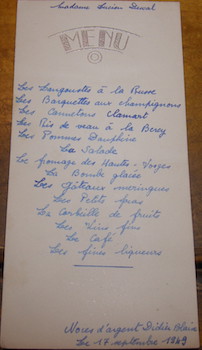 Madame Lucien Duval
MENU
Les Langoustes à la Russe
Les Barquettes aux champignons
Les Canetons Clamart
Les Ris de veau à la Bercy
Les Pommes Dauphine
La Salade
Le fromage des Hautes-Vosges
La Bombe glacée
Les Gâteaux meringues
Les Petits fours
La Corbeille de fruits
Les Vins fins
Le Café
Les fines liqueurs
Noces d'argent
Le 17 septembre 1949